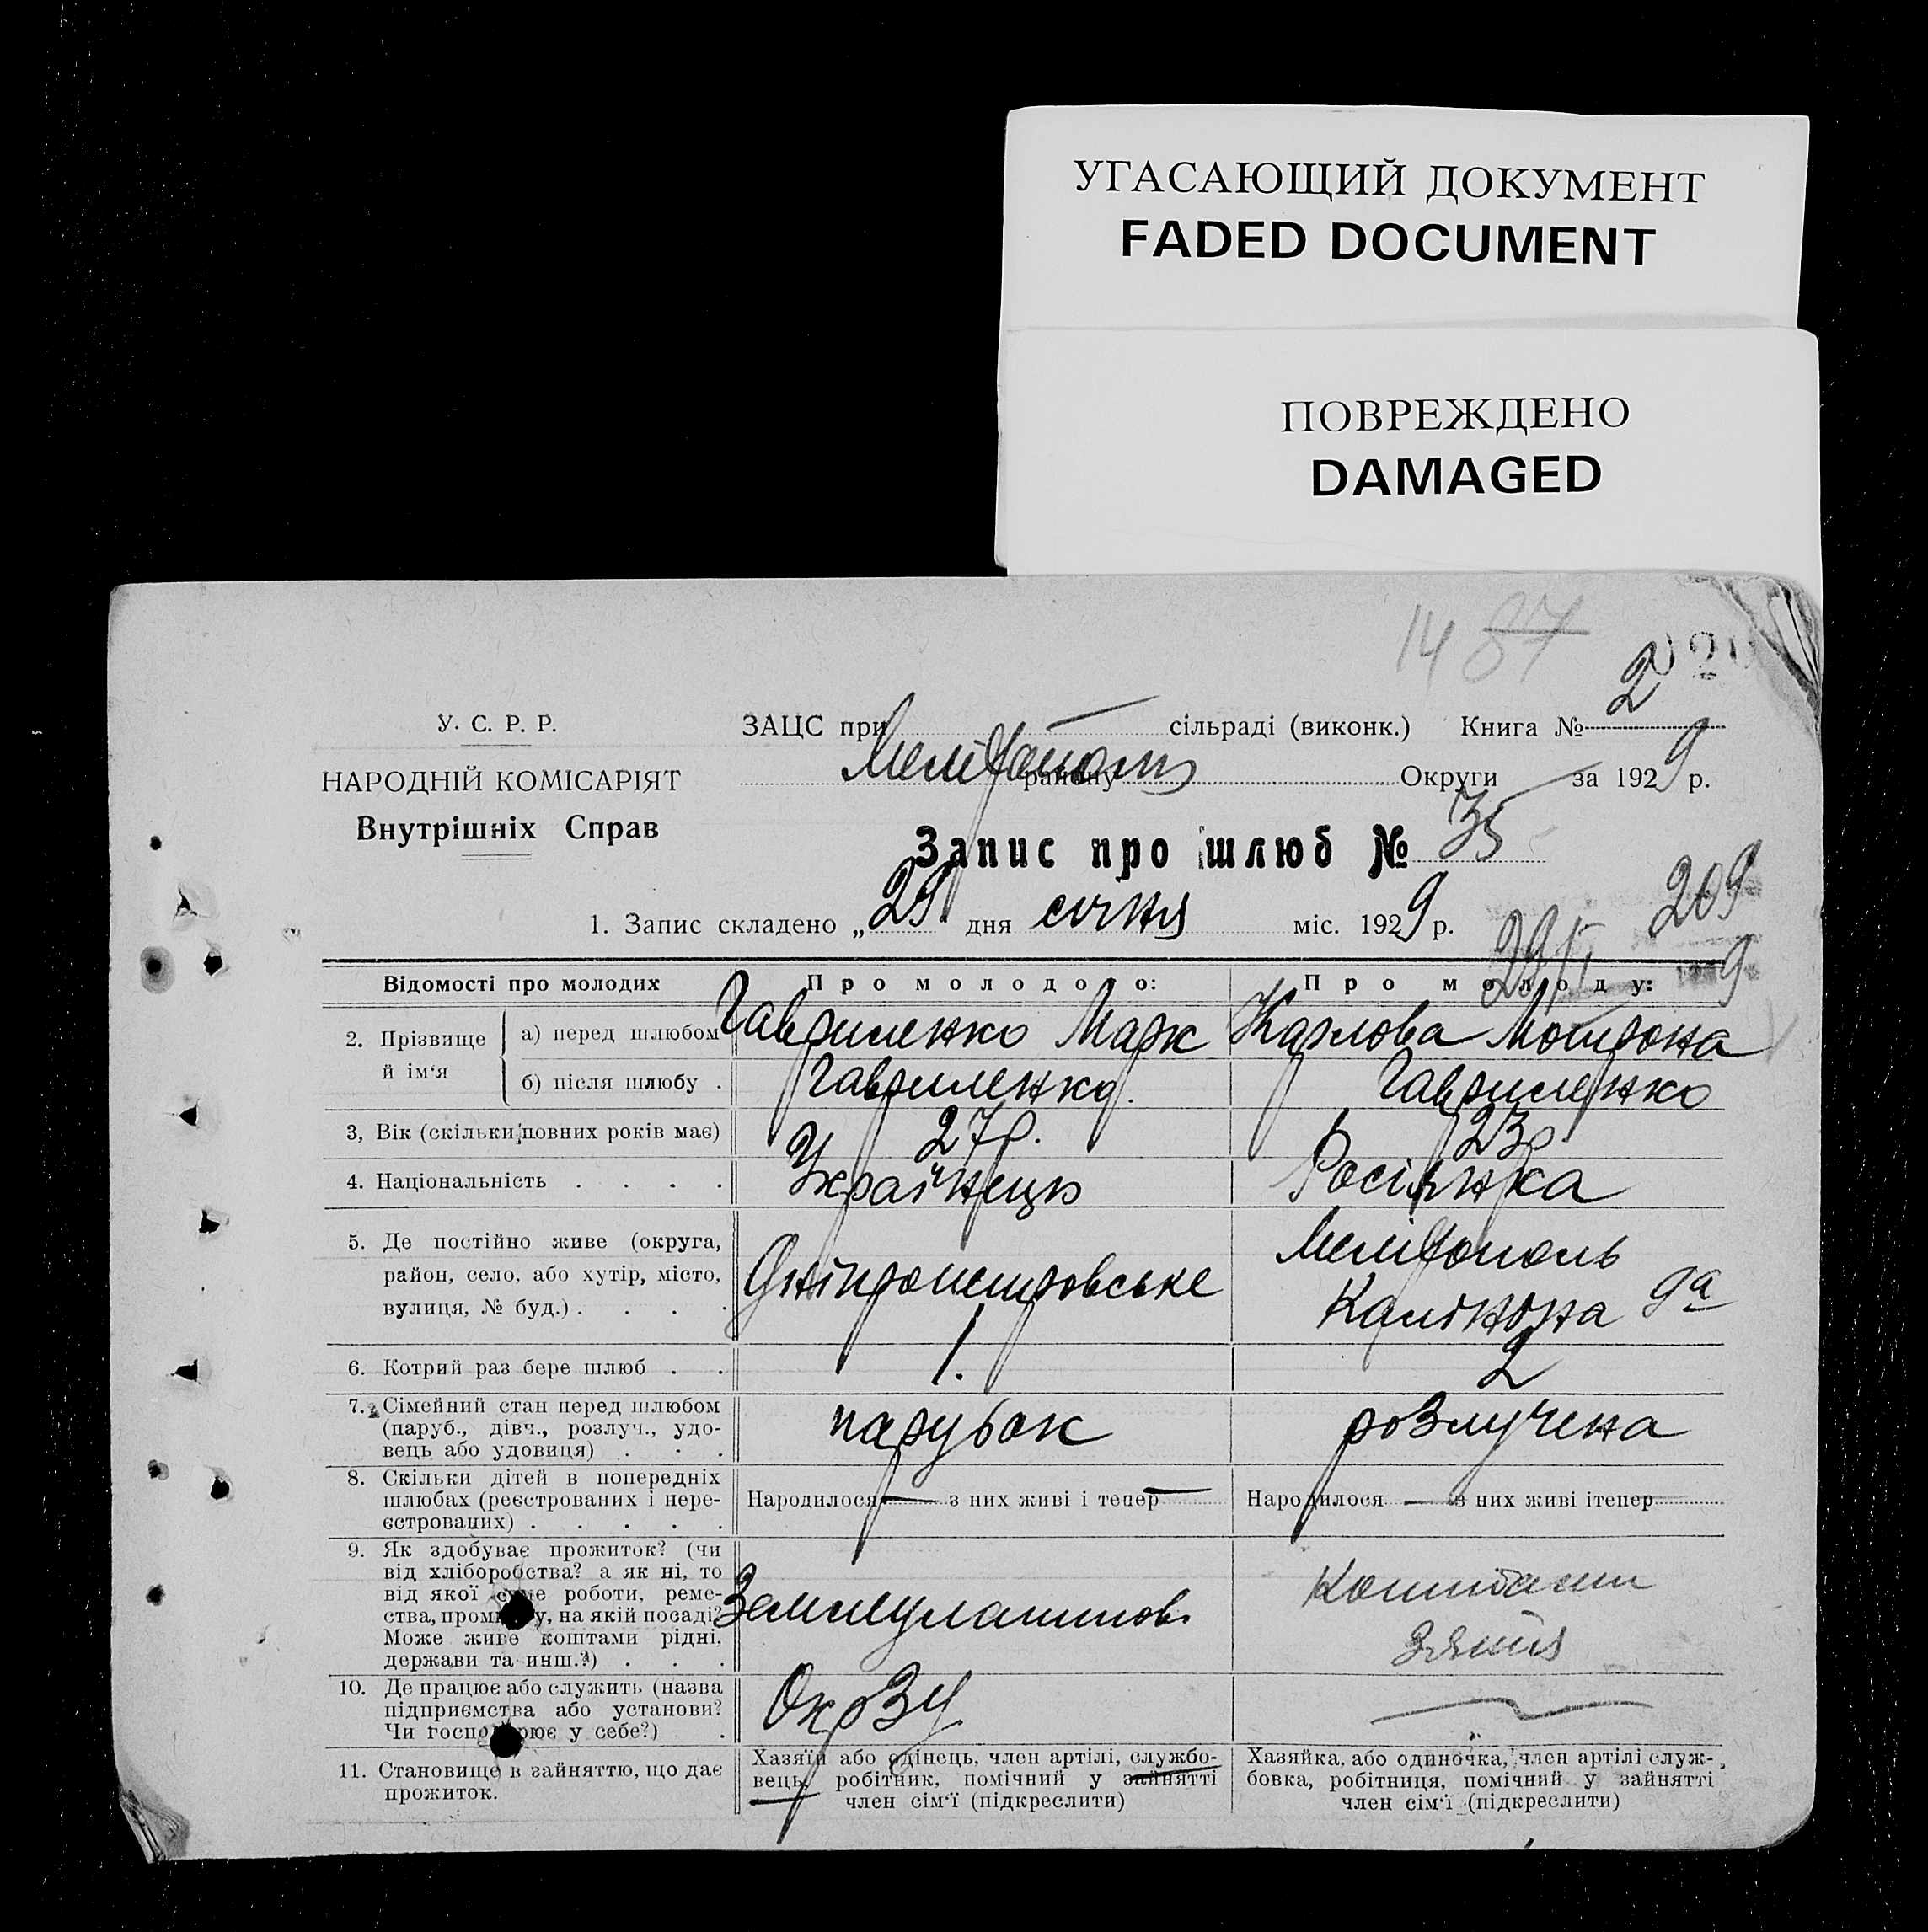 УГАСАЮЩИЙ ДОКУМЕНТ
FADED DOCUMENT
ПОВРЕЖДЕНО
DAMAGED
14 87
2
У. С. Р. Р.
ЗАЦС при сільраді (виконк.) Книга № 2
НАРОДНІЙ КОМІСАРІЯТ
Мелітополь району Округи за 1929 р.
Внутрішніх Справ
Запис про шлюб № 35
209
1. Запис складено „29 дня січня міс. 1929 р.
29/I 9
Відомості про молодих Про молодого: Про молоду:
2. Прізвище й ім‘я
а) перед шлюбом Гавриленко Марк Карлова Мотрона
б) після шлюбу . Гавриленко. Гавриленко
3, Вік (скільки повних років має) 27р. 23р.
4. Національність . . . . Українець Росіянка
5. Де постійно живе (округа,
район, село, або хутір, місто,
вулиця, № буд.) . . . .
Дніпропетровське
Мелітополь
Калініна 9а
6. Котрий раз бере шлюб . . 1. 2
7. Сімейний стан перед шлюбом
(паруб., дівч., розлуч., удо-
вець або удовиця) . . .
парубок розлучена
8. Скільки дітей в попередніх
шлюбах (реєстрованих і нере-
єстрованих) . . . . .
Народилося — з них живі і тепер —
Народилося — з них живі ітепер
9. Як здобуває прожиток? (чи
від хліборобства? а як ні, то
від якої роботи, реме-
ства, на якій посаді?
Може живе коштами рідні,
держави та инш.?) . . .
Коштами
зятя
10. Де працює або служить (назва
підприємства або установи?
Чи у себе?) .
ОкрЗУ
11. Становище в зайняттю, що дає
прожиток.
Хазяїн або одінець, член артілі, службо-
вець, робітник, помічний у зайнятті
член сім‘ї (підкреслити)
Хазяйка, або одиночка, член артілі служ-
бовка, робітниця, помічний у зайнятті
член сім‘ї (підкреслити)